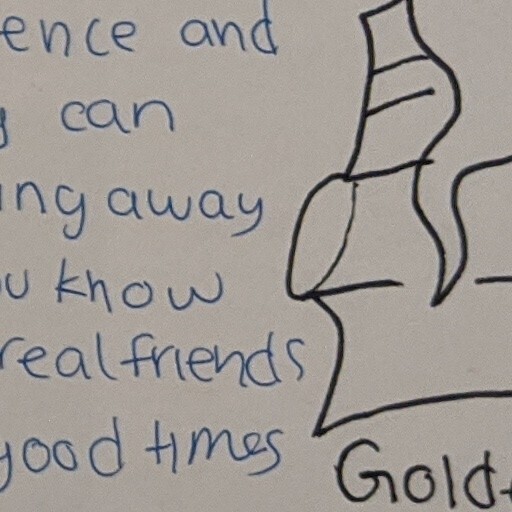 and
can
away
know
real friends
good times
Gold